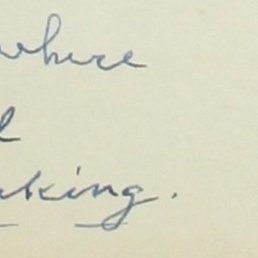 where
king.